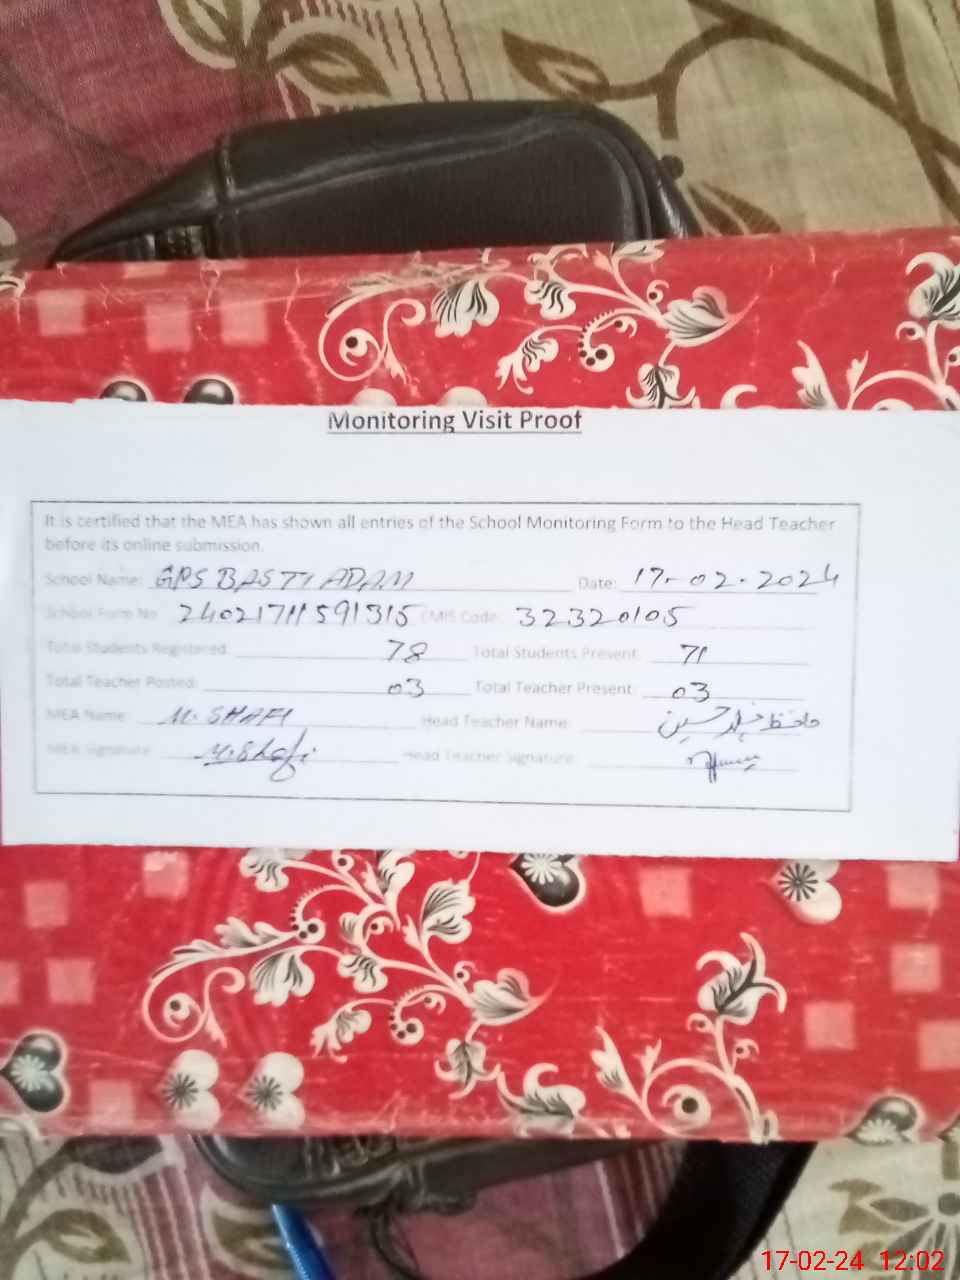 Monitoring Visit Proof
It is certified that the MEA has shown all entries of the School Monitoring Form to the Head Teacher
before its online submission.
School Name: GPS BASTI ADAM Date: 17-02-2024
School Form No 24021711591315 EMIS Code: 32320105
Total Students Registered: 78 Total Students Present: 71
Total Teacher Posted: 03 Total Teacher Present: 03
MEA Name: M. SHAFI Head Teacher Name: حافظ حسین
MEA Signature: M.Shafi Head Teacher Signature:
17-02-24 12:02